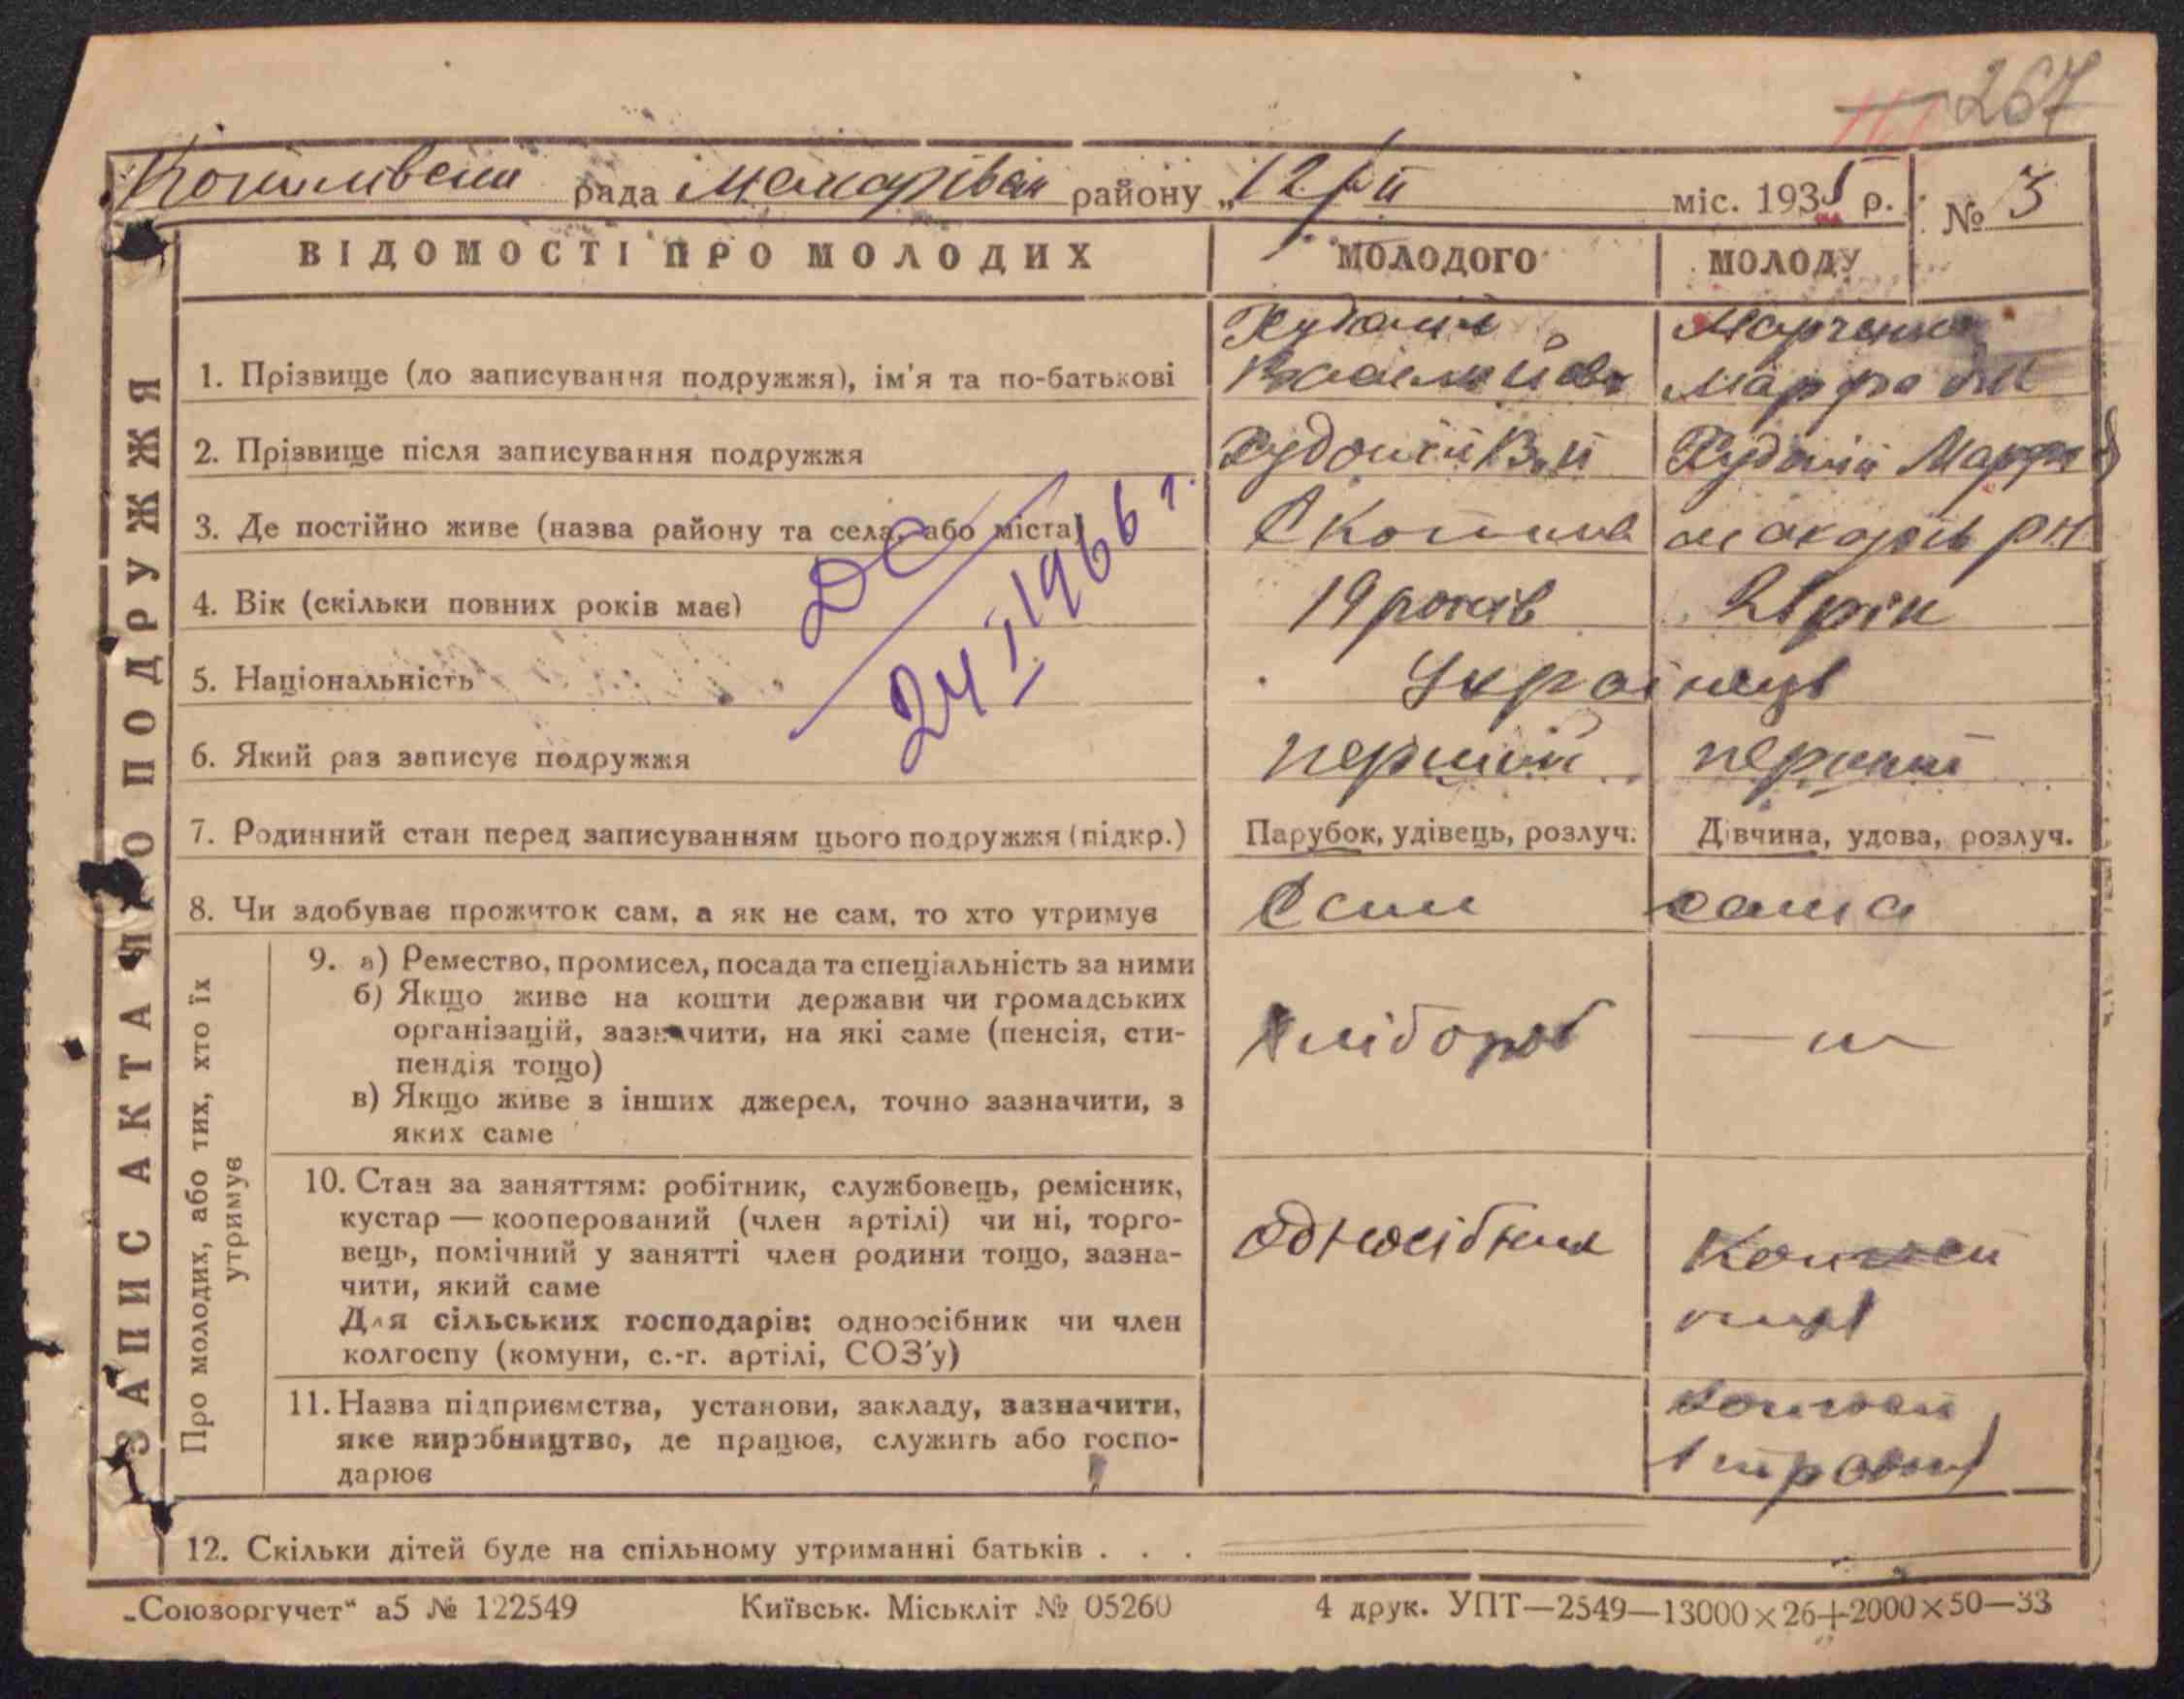 267
Копилівській рада Макарівськ району „12/ІІ міс. 1935 р. № 3
ЗАПИС АКТА ПРО ПОДРУЖЖЯ
ВІДОМОСТІ ПРО МОЛОДИХ МОЛОДОГО МОЛОДУ
Марченко
1. Прізвище (до записування подружжя), ім'я та по-батькові
2. Прізвище після записування подружжя Худолій В. Й Худолій Марфа
3. Де постійно живе (назва району та села, або міста) С Копилів макарів рн
4. Вік (скільки повних років має) 19 років 21 рік
24 І 1966 г.
5. Національність Українці
6. Який раз записує подружжя перший перший
7. Родинний стан перед записуванням цього подружжя (підкр.) Парубок, удівець, розлуч. Дівчина, удова, розлуч.
8. Чи здобуває прожиток сам, а як не сам, то хто утримує сама
Про молодих, або тих, хто їх
утримує
9. а) Ремество, промисел, посада та спеціальність за ними
б) Якщо живе на кошти держави чи громадських
організацій, зазначити, на які саме (пенсія, сти-
пендія тощо)
хлібороб — „ —
в) Якщо живе з інших джерел, точно зазначити, з
яких саме
10. Стан за заняттям: робітник, службовець, ремісник,
кустар — кооперований (член артілі) чи ні, торго-
вець, помічний у занятті член родини тощо, зазна-
чити, який саме
одноосібник
Для сільських господарів: одноосібник чи член
колгоспу (комуни, с.-г. артілі, СОЗ'у)
11. Назва підприємства, установи, закладу, зазначити,
яке виробництво, де працює, служить або госпо-
дарює
12. Скільки дітей буде на спільному утриманні батьків . . .
„Союзоргучет“ а5 № 122549 Київськ. Міськліт № 05260 4 друк. УПТ—2549—13000×26+2000×50—33